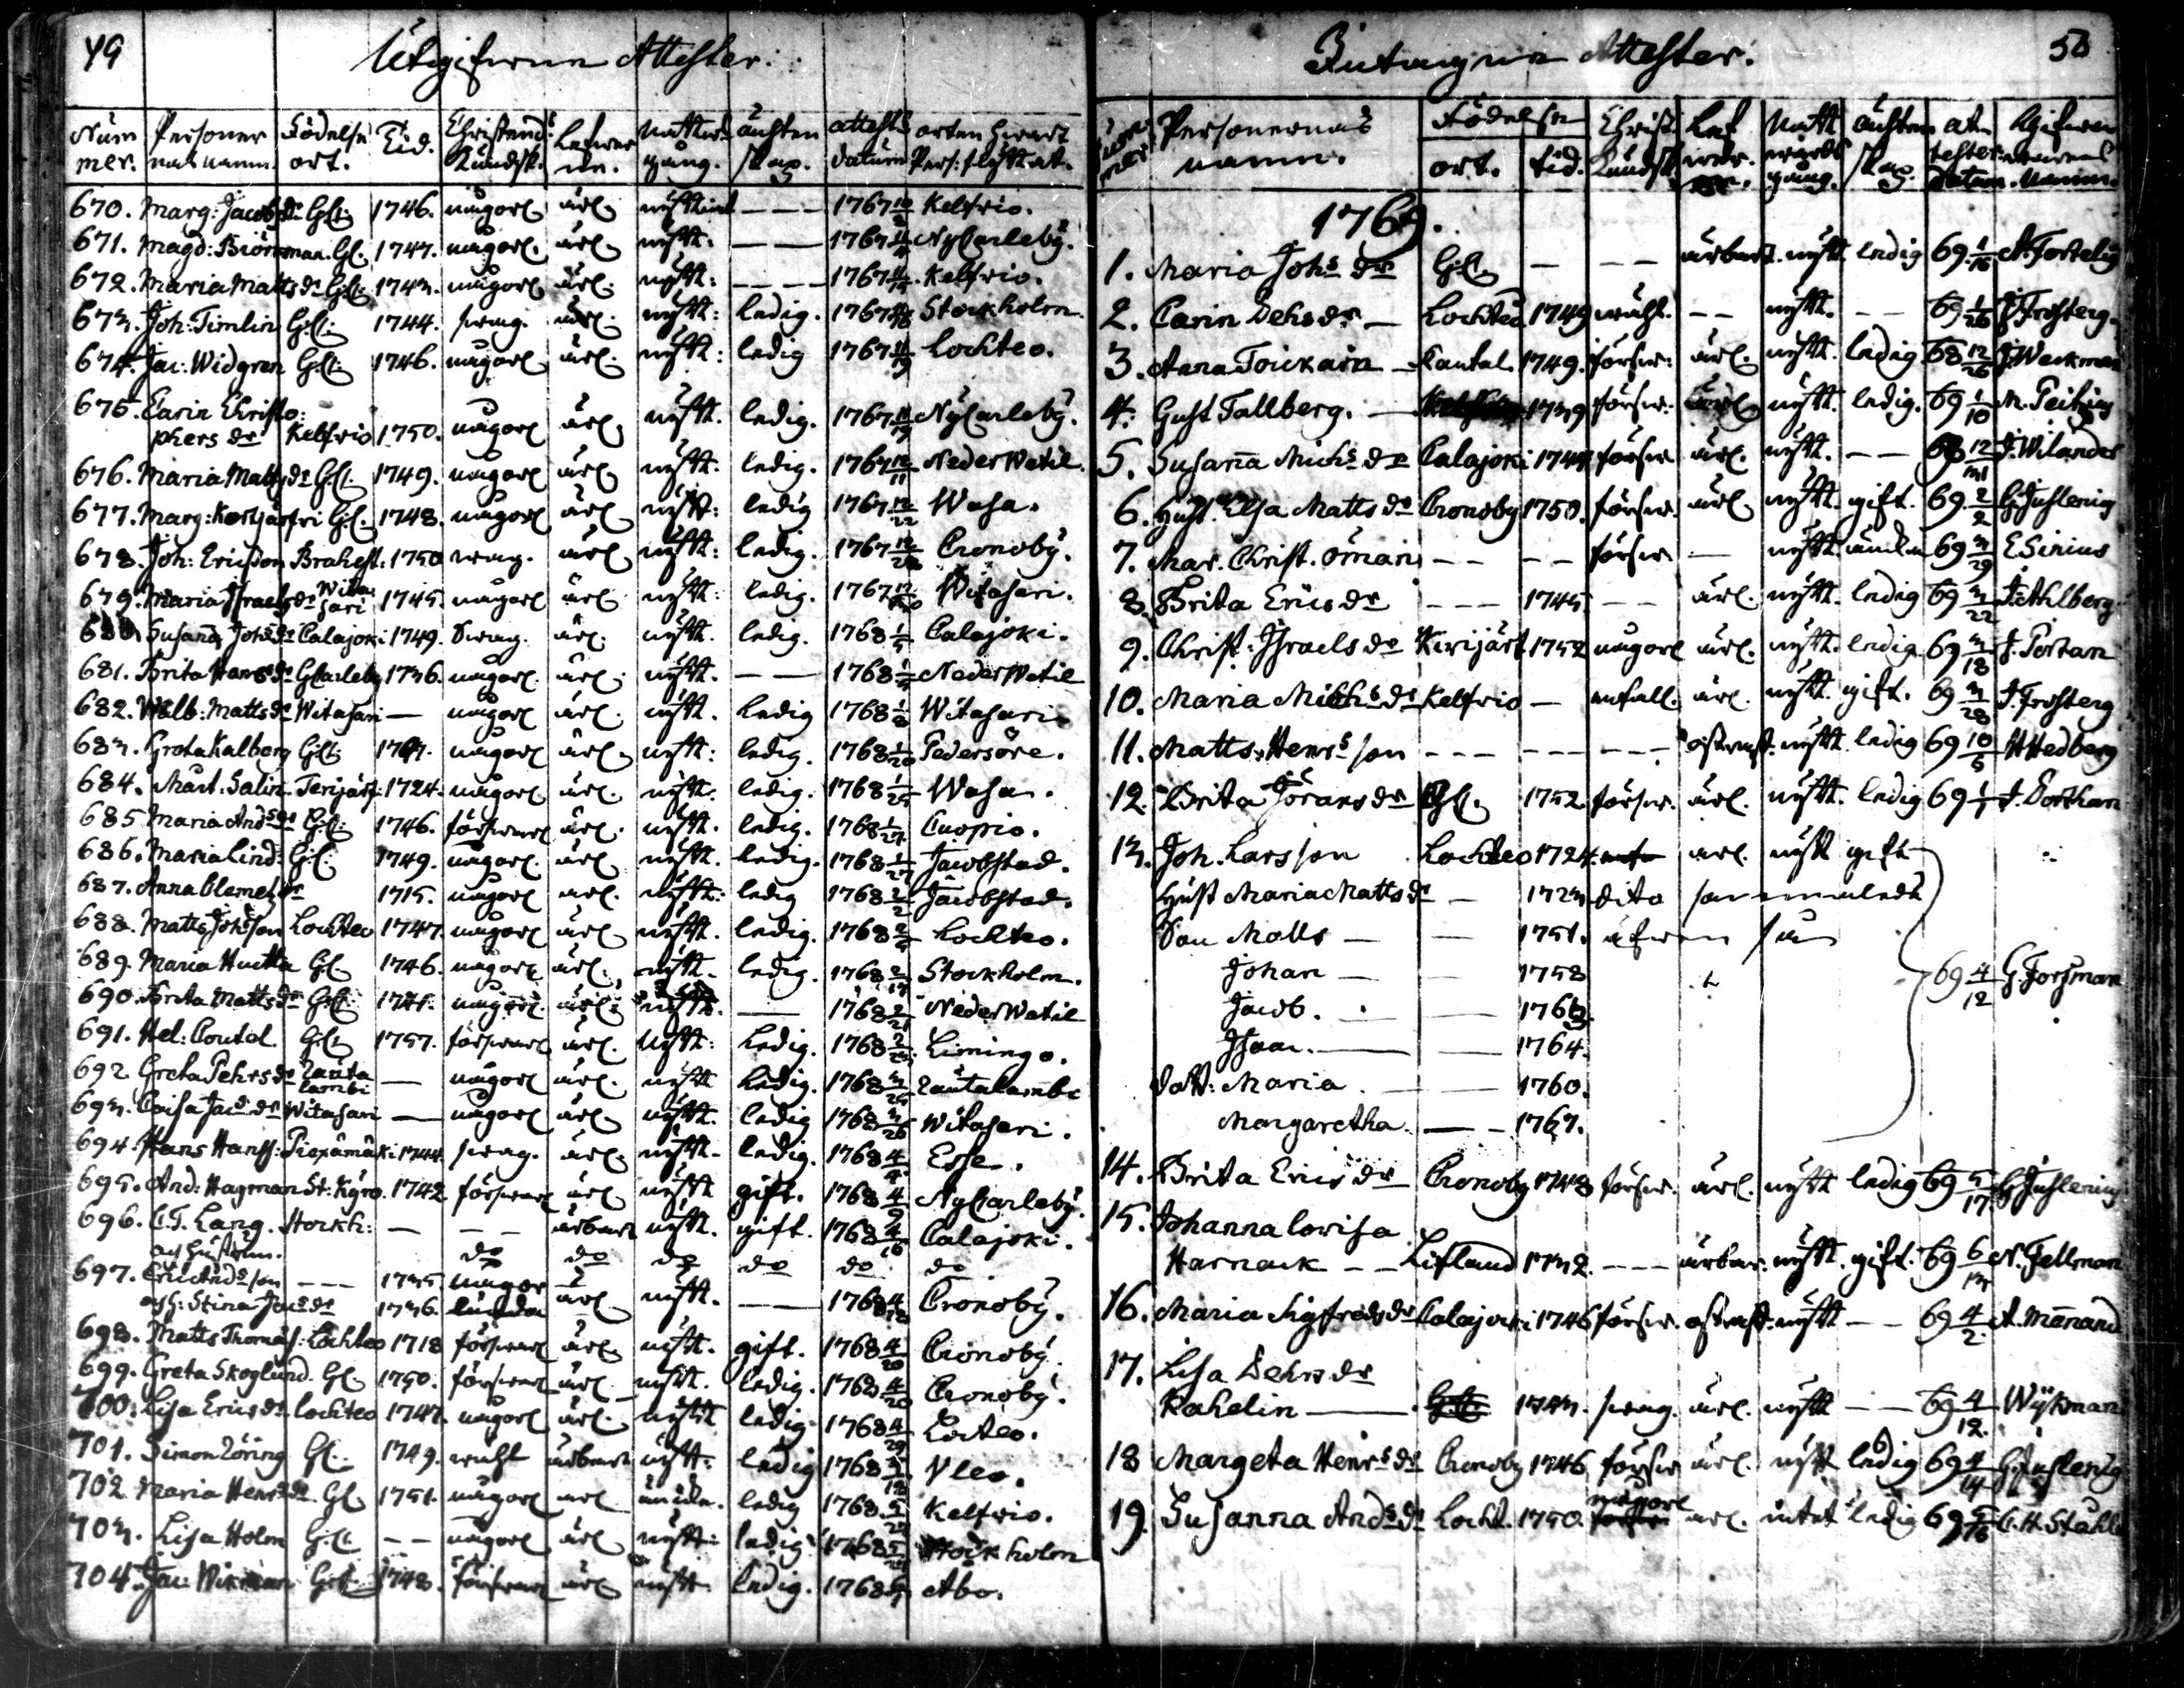 49
Utgifwna Attester.
Num mer. Personernas namn. Födelse ort. Tid. Christend: Kundsk. Lefwerne. Nattw: gång. ächten skap. attests datum orten hwart Pers: flyttat.
670. Marg: Jacobs dr GCl: 1746. någorl ärl. nyttiat --- 1767 Kelfwio.
671. Magd: Biörnman. GCl. 1747. någorl. ärl. nytt: --- 1767 NyCarleby.
672. Maria Matts dr GCl: 1743. någorl ärl. nytt: --- 1767 Kelfwio.
673. Joh: Timlin GCl: 1744. swag. ärl. nytt: ledig. 1767 Stockholm.
674. Jac: Widgren GCl: 1746. någorl ärl. nytt: ledig 1767 Lochteo.
675. Carin Christo:
phers dr Kelfwio 1750. någorl ärl. nytt. ledig. 1767 NyCarleby.
676. Maria Matts dr GCl. 1749. någorl ärl. nytt. ledig. 1767 12/11 NederWetil.
677. Marg: Kortjärfwi GCl. 1748. någorl ärl nytt: ledig 1767 12/22 Wasa.
678. Joh: Ericsson Brahest: 1750 swag. ärl nytt: ledig. 1767 Cronoby.
679. Maria Israels dr Wita sari 1745. någorl ärl nytt: ledig. 1767 Witasari.
680. Susanna Johs dr Calajoki 1749. Swag. ärl. nytt. ledig. 1768 1/5 Calajoki.
681. Brita Hans dr GCarleby 1736. någorl. ärl. nytt. -- 1768 NederWetil
682. Walb: Matts dr Witasari — någorl ärl. nytt. ledig 1768 Witasari
683. Greta Kalberg GCl: någorl ärl. nytt: ledig. 1768 1/20 Pedersöre.
684. Mårt. Salin. Terijärf: 1724. någorl ärl. nytt. ledig. 1768 1/25 Wasa.
685. Maria Ands dr GCl: 1746. förswarl ärl. nytt. ledig. 1768 1/27 Cuopio.
686. Maria Lind: GCl: 1749. någorl. ärl nytt. ledig. 1768 1/27 Jacobstad.
687. Anna Clemets dr 1715. någorl ärl. nytt: ledig 1768 2/2 Jacobstad.
688. Matts Johsson Lochteo 1747. någorl ärl nytt. ledig. 1768 Lochteo.
689. Maria Huctla GCl 1746. någorl ärl. nytt. ledig. 1768 2/17 Stockholm.
690. Brita Matts dr GCl: någorl. ärl. nytt. — 1768 2/21 NederWetil
691. Hel: Contel. GCl: 1757. förswarl ärl. nytt: ledig. 1768 Limingo.
692. Greta Pehrs dr Rauta lambi — någorl ärl. nytt ledig. 1768 3/25 Rautalambi
693. Caisa Jacs dr Witasari — någorl ärl nytt. ledig 1768 3/26 Witasari.
694. Hans Hanss: Piexämäki 1744. swag. ärl. nytt. ledig. 1768 4/4 Esse.
695. And: Hagman St: Kyro. 1742 förswarl ärl nytt gift. 1768 4/9 NyCarleby.
696. C. J. Lang. Stockh: — -- ärbart nytt. gift. 1768 4/16 Calajoki.
och hustrun. do do do do do do
697. Eric Andsson --- 1735 någor
och h: Stina Jacs dr 1736. lunda ärl nytt. — 1768 4/18 Cronoby.
698. Matts Thomæs: Lochteo 1718 förswarl ärl nytt. gift. 1768 4/20 Cronoby.
699. Greta Skoglund GCl. 1750. förswarl ärl nytt. ledig. 1768 4/20 Cronoby.
700. Lisa Erics dr Lochteo 1747. någorl ärl. nytt ledig 1768 4/29 Locteo.
701. Simon Löring GCl. 1749. wähl ärbart nytt. ledig 1768 Uleo.
702. Maria Henrs dr GCl. 1751. någorl ärl ledig 1768 Kelfwio.
703. Lisa Holm GCl. -- någorl ärl nytt: ledig 1768 Stockholm
704. Jac: Wikman GCl. 1748. förswarl ärl nytt. ledig. 1768 Abo.
50
Intagna Attester.
Num mer Personernas namn. Födelse ort. tid. Christ. Kundsk Lef werne. Natt wards gång. ächten skap. at tester datum. Gifware namn.
1769.
1. Maria Johs dr GCl — --- ärbart. nytt. ledig 69 1/16 A. Forselig
2. Carin Pehrs dr — Lochteo 1749 wähl. -- nytt. -- 69 1/26 J. Frosterg.
3. Anna Toickain Kantal. 1749. förswr: ärl. nytt. ledig 68 12/26 J. Wackman
4. Gust Tallberg. — 1739 förswr. ärl nytt. ledig. 69 1/10 M. Peitzius
5. Susanna Michs dr Calajoki förswr ärl. nytt. -- 68 12/31 J. Wilander
6. Hust. Elsa Matts dr Cronoby 1750. förswr. ärl nytt. gift. 69 2/2 G. Juslenius
7. Mar. Christ. Öman -- -- förswr. — nytt. änka 69 3/29 E Sirius
8. Brita Erics dr --- 1745 -- ärl. nytt. ledig 69 3/22 J. Ahlberg.
9. Christ: Israels dr Kirijärf 1752 någorl ärl. nytt. ledig 69 3/18 J. Portan
10. Maria Michs dr Kelfwio — enfall. ärl. nytt. gift. 69 3/28 J. Frosterg
11. Matts Henrs son --- --- ostraff. nytt. ledig 69 10/5 H Hedberg
12. Brita Jörans dr GCl. 1752. förswr. ärl. nytt. ledig 69 J. Porthan
13. Joh. Larsson Lochteo 1724. ärl. nytt gift
Hust Maria Matts dr — 1723 dito sammaledes
Son Matts — — 1751. äfwen så
Johan — 1758
Jacob. 1763.
Isaac. — — 1764. 69 4/12 G. Forssman
Dott: Maria — 1760.
Margaretha. — 1767.
14. Brita Erics dr Cronoby 1748 förswr. ärl. nytt ledig 69 5/17 G Juslenius
15. Johanna Lovisa
Harnack -- Lifland 1732. --- ärbar. nytt. gift. 69 6/13 N. Fellman
16. Maria Sigfreds dr Calajoki 1746 förswr. ostraff. nytt — 69 4/2 A. Mennand
17. Lisa Pehrs dr
Rahelin — 1743. swag. ärl. nytt -- 69 4/12. Wijkman
18 Margeta Henrs dr Cronoby 1746 förswr ärl. nytt ledig 69 4/14 G. Juslenig
19. Susanna Ands dr Locht. 1750. någorl ärl. intet ledig 69 5/16 C. H. Ståhle